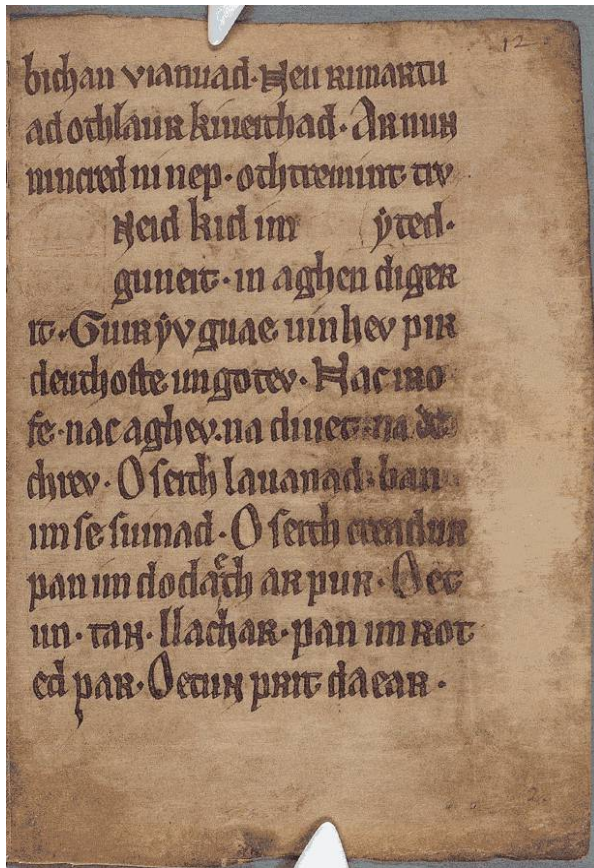 12
bichan vianuad. Neu rimartu
ad othlaur kiueithad. Ar nun
nincred ni nep. ochtremint tiv
Neid kid im ẏted.
guneit. in aghen diger
it. Guir ẏv guae uinhev pir
deuthoste imgotev. Nac imo
fe. nac aghev. na diuet. na
chrev. O seith lauanad. ban
im se suinad. O seith creadur
pan im dodaeth ar pur. Oet
un. tan. llachar. pan im rot
ed par. Oetun prit daear.